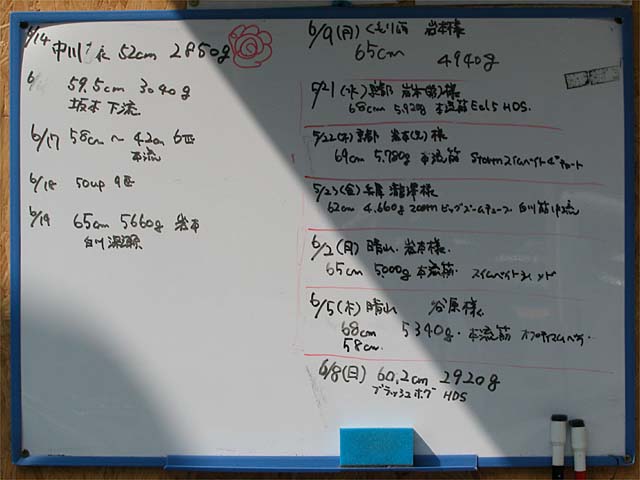 6/14 中川 52cm 2850g
6/ 59.5cm 3040g
坂本 下流
6/17 58cm〜42cm 6匹
本流
6/18 50up 9匹
6/19 65cm 5660g 岩本
白川
6/9(月) くもり 岩本様
65cm 4940g
5/21(水) 京都 岩本様
68cm 5,920g 本流筋 HDS.
5/22(木) 京都 岩本様
69cm 5,780g 本流筋 Storm スイムベイト4"チャート
5/23(金) 兵庫 瀧澤様
62cm 4,660g zoom ビッグズームチューブ 白川筋中流
6/2(月) 晴山 岩本様.
65cm 5,000g 本流筋. スイムベイト
6/5(木) 晴山 谷原様
68cm 5340g. 本流筋
58cm.
6/8(日) 60,2cm 2920g
ブラッシュホグ HDS